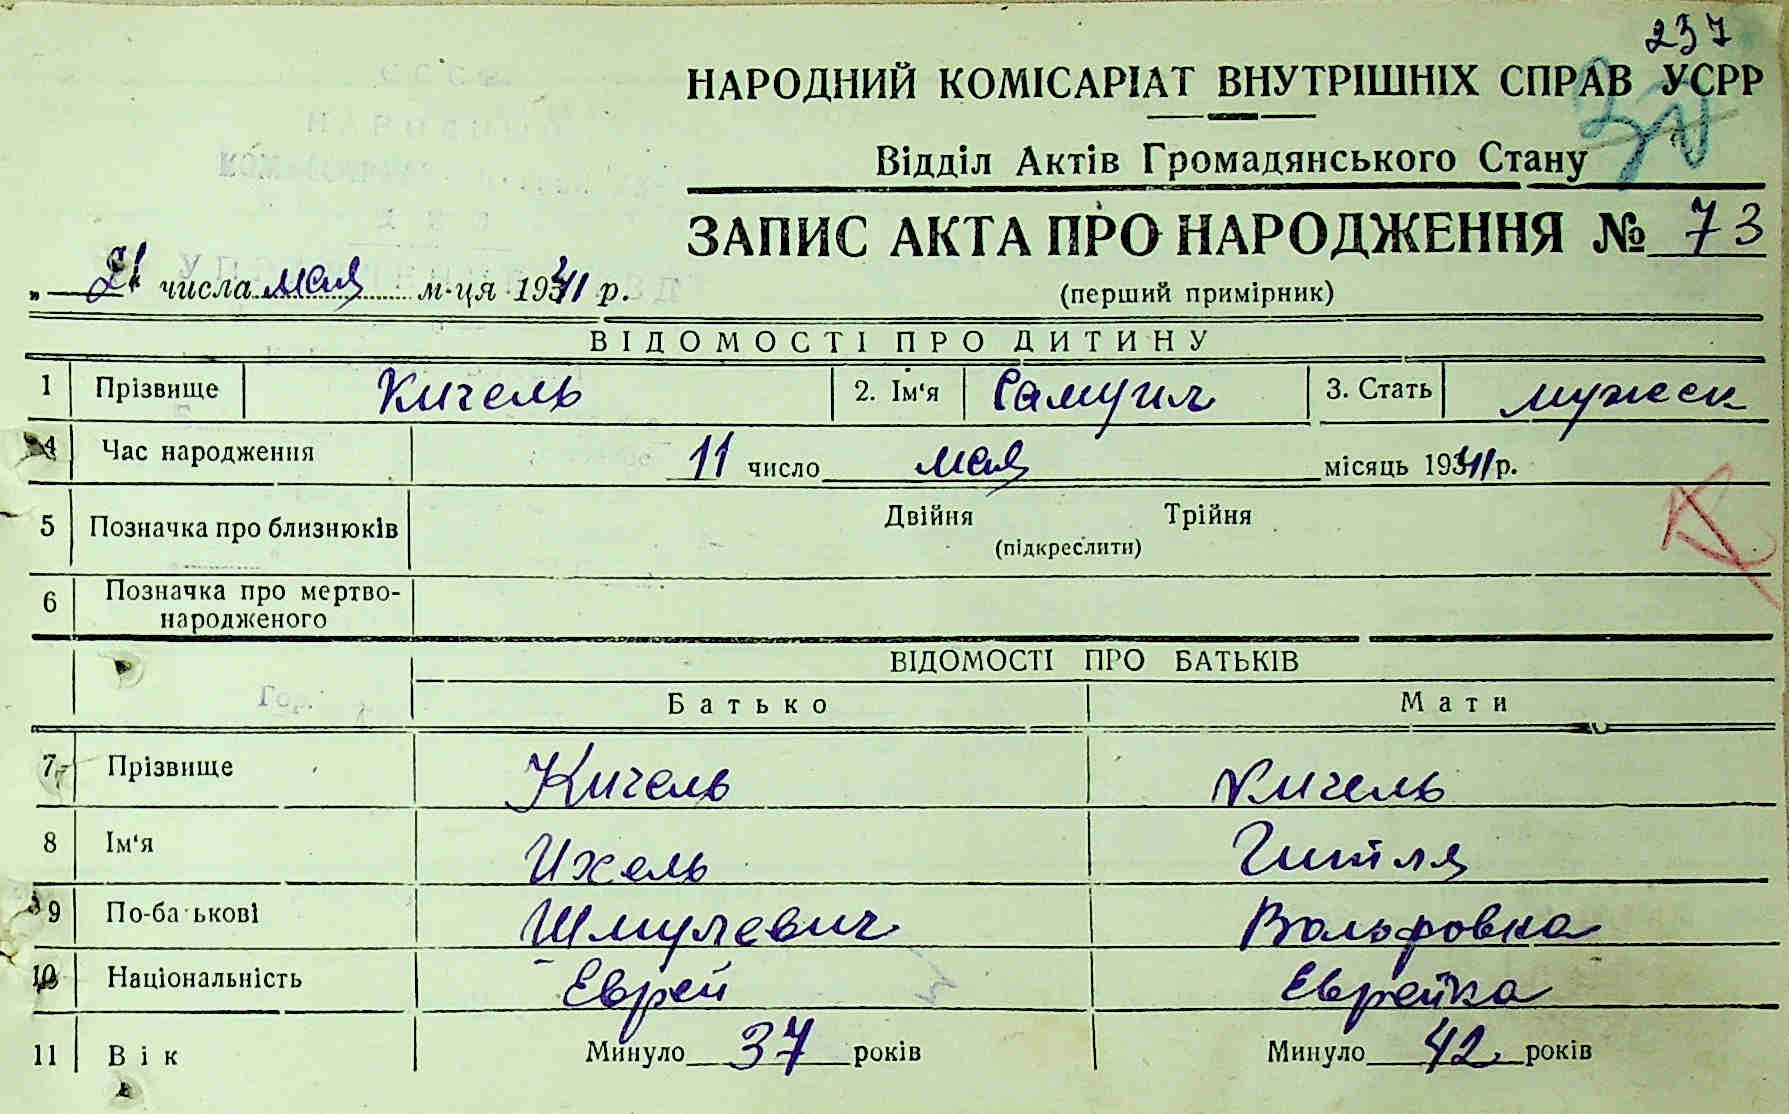 237
НАРОДНИЙ КОМІСАРІАТ ВНУТРІШНІХ СПРАВ УСРР
Відділ Актів Громадянського Стану
ЗАПИС АКТА ПРО НАРОДЖЕННЯ № 73
„ 21 числа мая м-ця 1941 р.
(перший примірник)
ВІДОМОСТІ ПРО ДИТИНУ
1 Прізвище Кичель 2. Ім'я Самуил 3. Стать мужск
4 Час народження 11 число мая місяць 1941 р.
5 Позначка про близнюків Двійня Трійня
(підкреслити)
6 Позначка про мертво-
народженого
ВІДОМОСТІ ПРО БАТЬКІВ
Батько Мати
7 Прізвище Кичель Кичель
8 Ім'я Ихель Гитля
9 По-батькові Шмулевич Вольфовна
10 Національність Еврей Еврейка
11 Вік Минуло 37 років Минуло 42 років